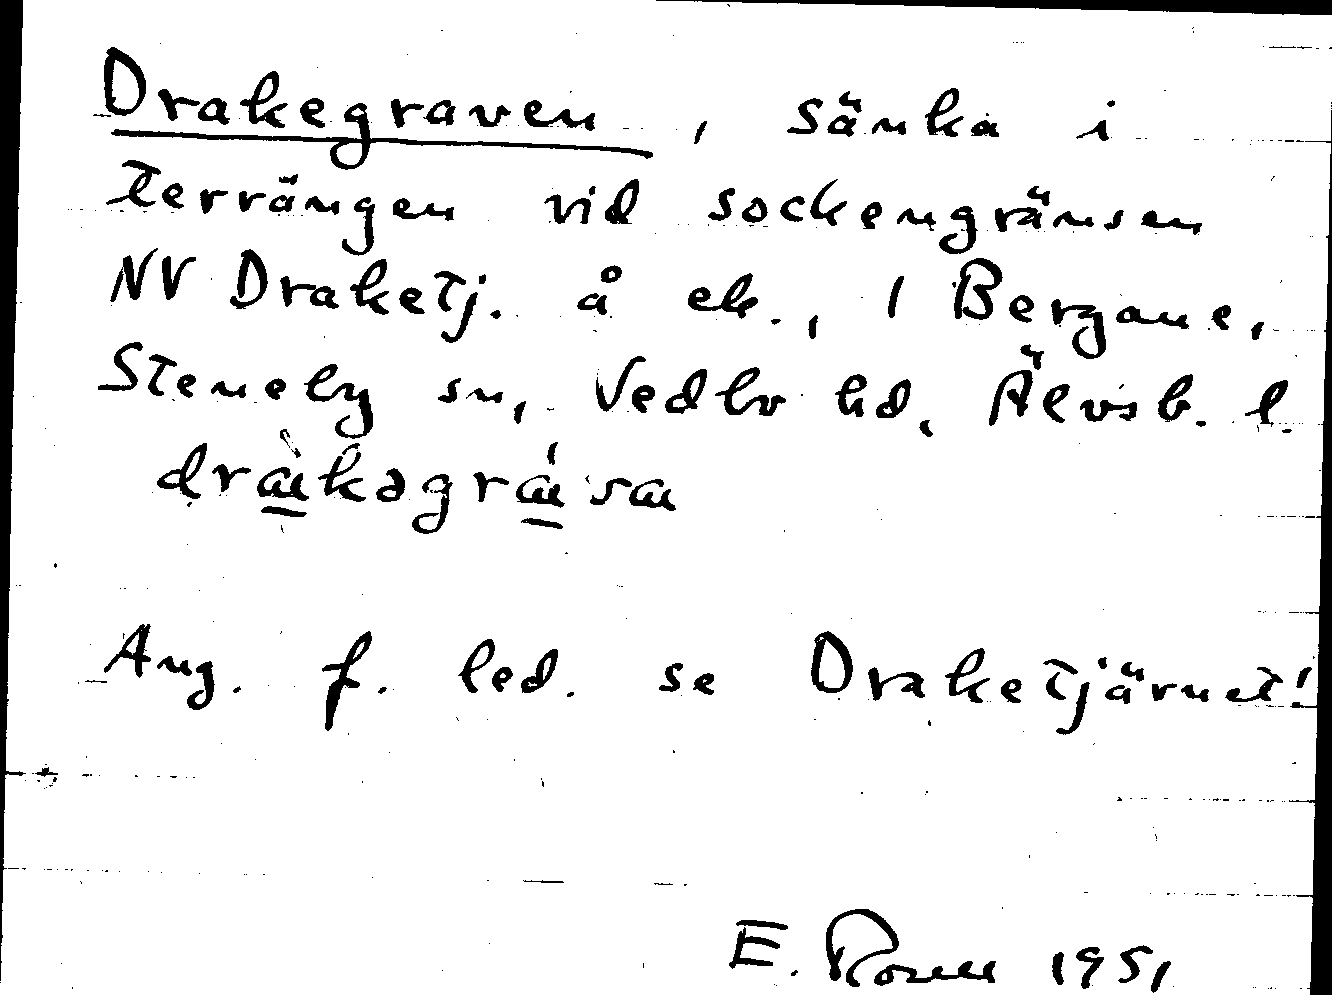 Drakegraven, sänka i
terrängen vid sockengränsen
NV Draketj. å ek., 1 Bergane,
Steneby sn, Vedbo hd, Älvsb. l.
Ang. f. led. se Draketjärnet!
E. Rosell 1951